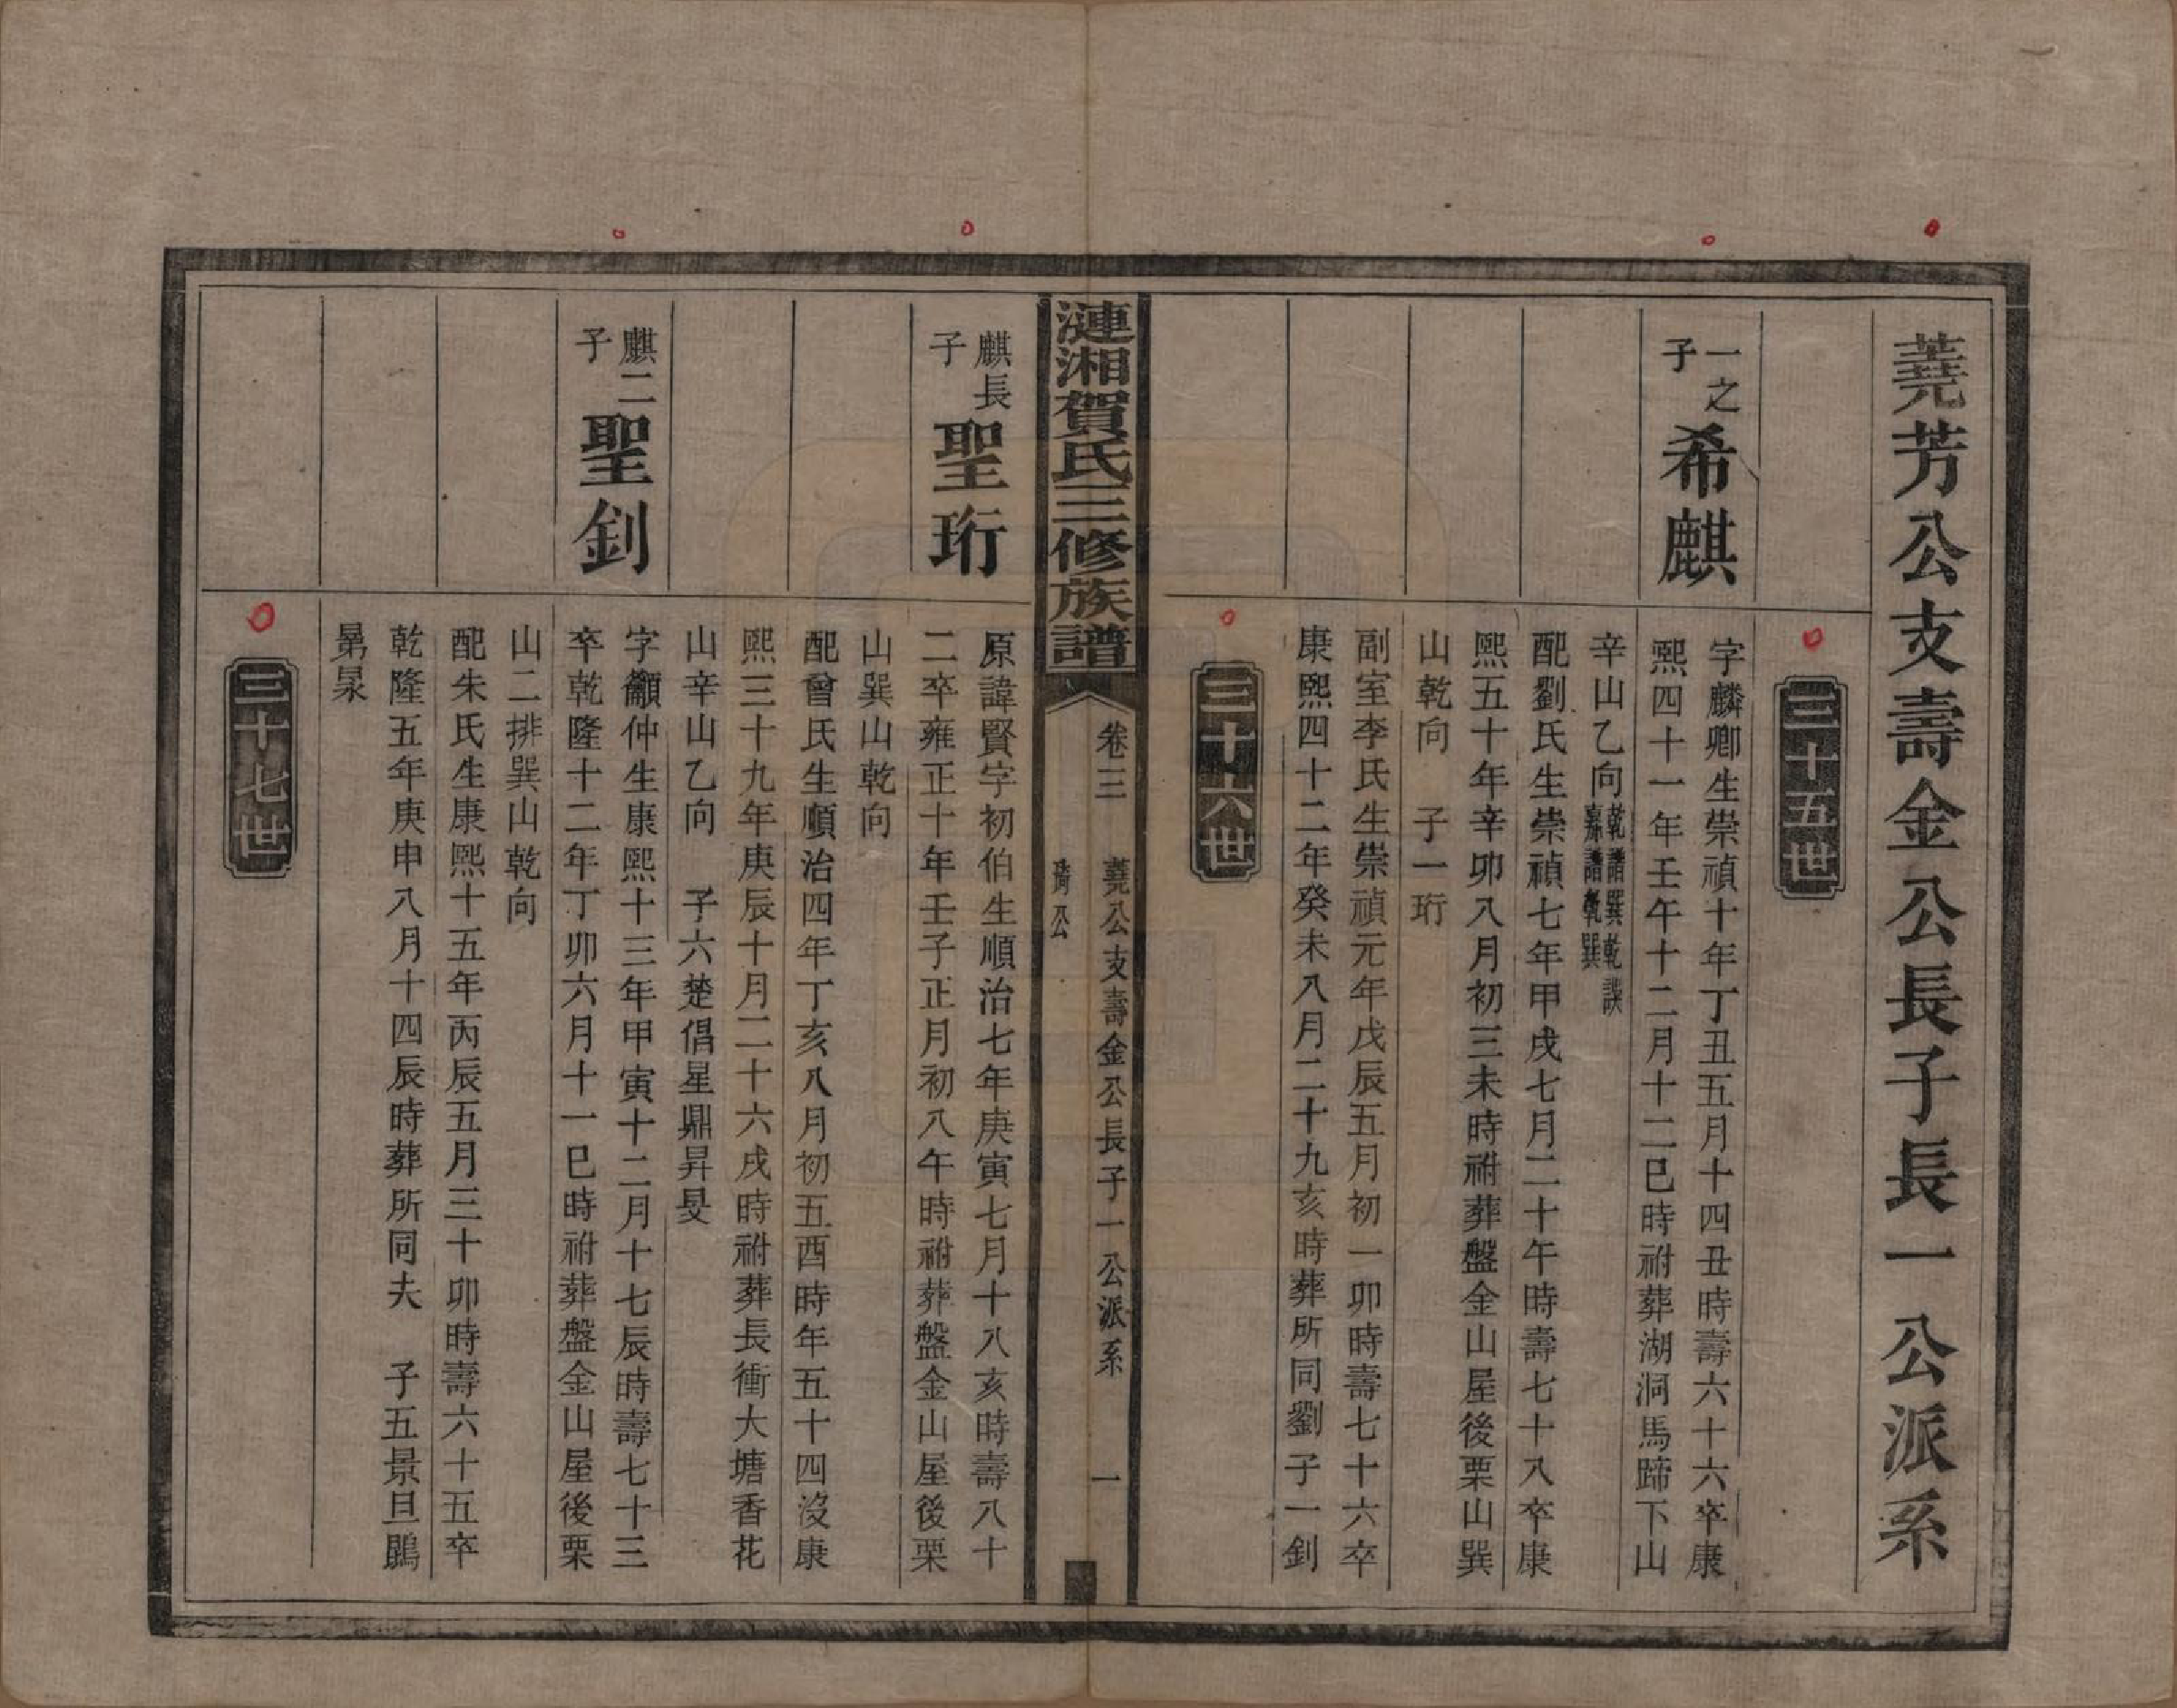 蕘芳公支壽金公長子長一公派系
三十五世
一之子
希麒
字麟卿生崇禎十年丁丑五月十四丑時壽六十六卒康
熙四十一年壬午十二月十二巳時祔葬湖洞馬蹄下山
辛山乙向乾譜巽乾誤嘉譜乾巽
配劉氏生崇禎七年甲戌七月二十午時壽七十八卒康
熙五十年辛卯八月初三未時祔葬盤金山屋後栗山巽
山乾向 子一珩
副室李氏生崇禎元年戊辰五月初一卯時壽七十六卒
康熙四十二年癸未八月二十九亥時葬所同劉子一釗
三十六世
漣湘賀氏三修族譜
卷三 蕘公支壽金公長子一公派系 一
公
麒長子
聖珩
原諱賢字初伯生順治七年庚寅七月十八亥時壽八十
二卒雍正十年壬子正月初八午時祔葬盤金山屋後栗
山巽山乾向
配曾氏生順治四年丁亥八月初五酉時年五十四沒康
熙三十九年庚辰十月二十六戌時祔葬長衝大塘香花
山辛山乙向 子六楚倡星鼎昇旻
麒二子
聖釗
字籲仲生康熙十三年甲寅十二月十七辰時壽七十三
卒乾隆十二年丁卯六月十一巳時祔葬盤金山屋後栗
山二排巽山乾向
配朱氏生康熙十五年丙辰五月三十卯時壽六十五卒
乾隆五年庚申八月十四辰時葬所同夫 子五景旦鵾
三十七世